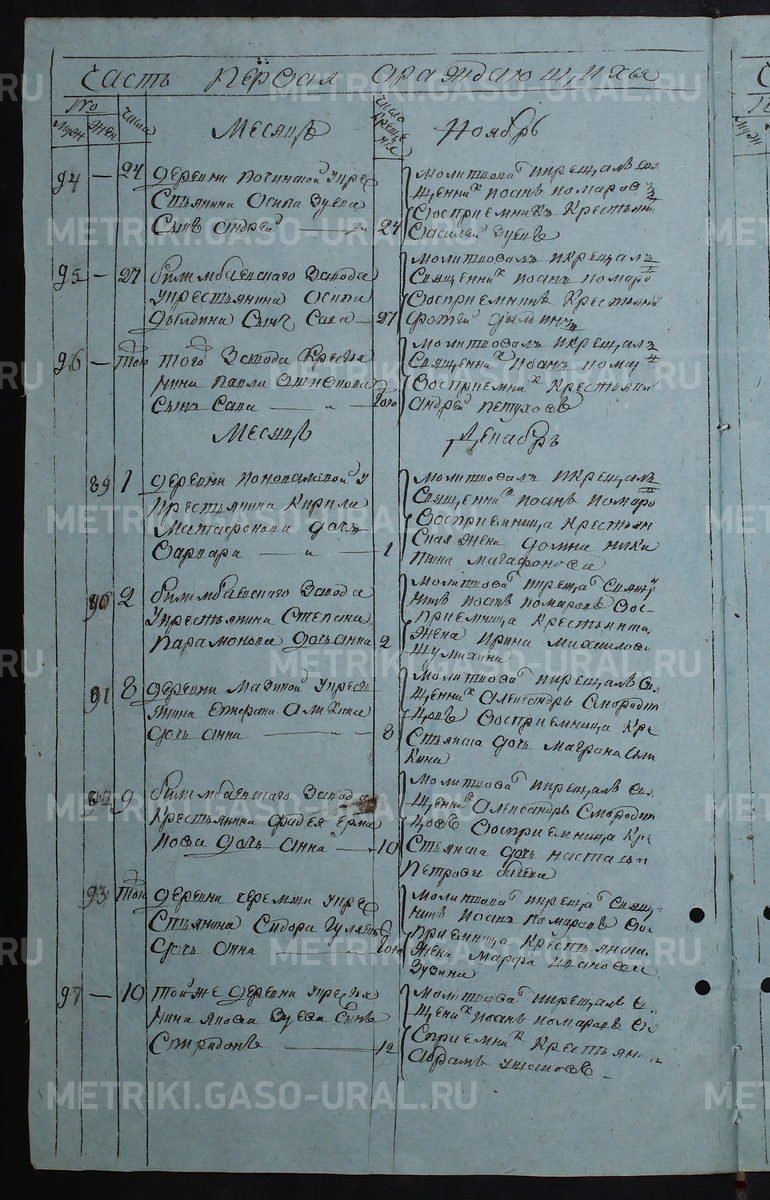 Часть первая ораждающихся
No
Муж Жен
Числа
Число крещения
Месяцъ Ноябрь
94 — 24 деревни Починкой укрес
стьянина Осипа Зуева
сынъ Андрей — 24
молитвовалъ икрещалъ свя
щенникъ Иоанъ Комаровъ
Восприемникъ крестьянинъ
Василей Зуевъ
95 — 27 Билимбаевскаго завода
укрестьянина Осипа
Дылдина сынъ Сава — 27
молитвовалъ икрещалъ
священникъ Иоанъ Комаро
Восприемникъ крестьянинъ
Фотей Дылдинъ
96 — того того завода крестья
нина Павла
сынъ Сава — того
молитвовалъ икрещалъ
священникъ Иоанъ Комар
Восприемникъ крестьянин
Андрей Петуховъ
Месяцъ Декабрь
89 1 деревни Коновалавой у
крестьянина Кирила
Матафонова дочь
Варвара — 1
молитвовалъ икрещалъ
священникъ Иоанъ Комаро
Восприемница крестьян
ская жена Домна Ники
тина Матафонова
90 2 Билимбаевскаго завода
укрестьянина Степана
Парамонова дочь Анна 2
молитвовалъ икрещалъ священ
никъ Иоанъ Комаровъ Вос-
приемница крестьянина
жена Ирина Михайлова
91 8 деревни Макиной укресть
янина Аликина
дочь Анна — 8
молитвовалъ икрещалъ свя
щенникъ Александръ Смородин
цовъ Восприемница кре
стьянска дочь Матрона Али
кина
92 9 Билимбаевскаго завода
крестьянина Фадея Ерма
кова дочь Анна — 10
молитвовалъ икрещалъ свя
щенникъ Александръ Смородин
цовъ Восприемница кре
стьянска дочь Настасья
Петрова
93 того деревни Черемши укрес
стьянина Сидора Гуляева
дочь Анна — того
молитвовалъ икрещалъ священ
никъ Иоанъ Комаровъ Вос
приемница крестьянина
жена Марфа Иванова
Зуевина
97 — 10 тойже деревни укрестья
нина Якова Зуева сынъ
Спиридонъ — 12
молитвовалъ икрещалъ свя
щенникъ Иоанъ Комаровъ Во
сприемникъ крестьянин
Абрамъ
METRIKI.GASO-URAL.RU